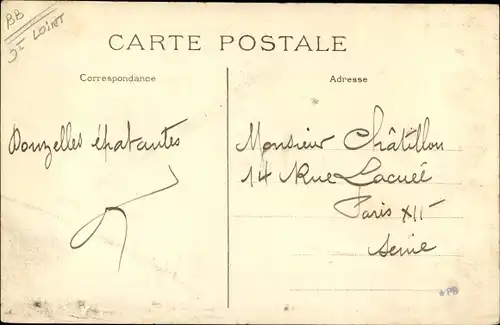 BB
St Loiret
CARTE POSTALE
Correspondance
Adresse
Donzelles épatantes
Monsieur Châtillon
14 Rue Lacuée
Paris XII
Seine
*PB